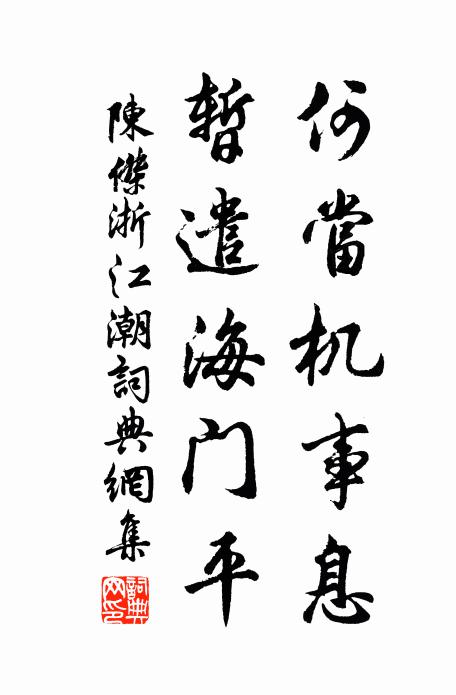 何當机事息
暫遣海门平
陳傑浙江潮詞典網集
詞典网印